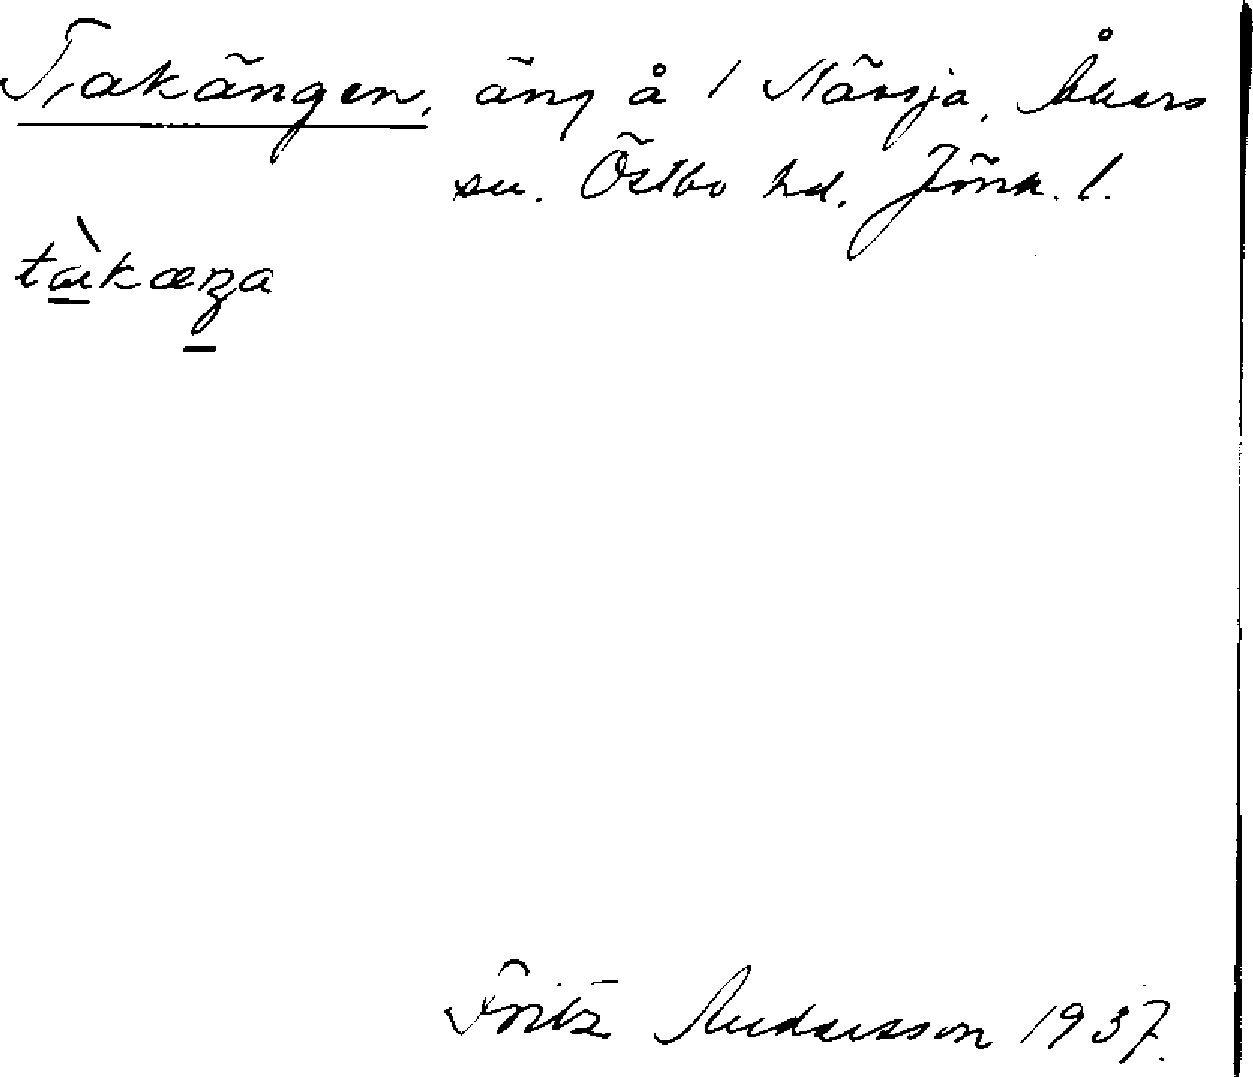 Takängen, äng å 1 Närsja, Åkers
sn. Östbo hd. Jönk. l.
tàkæŋa
Fritz Andersson 1937.